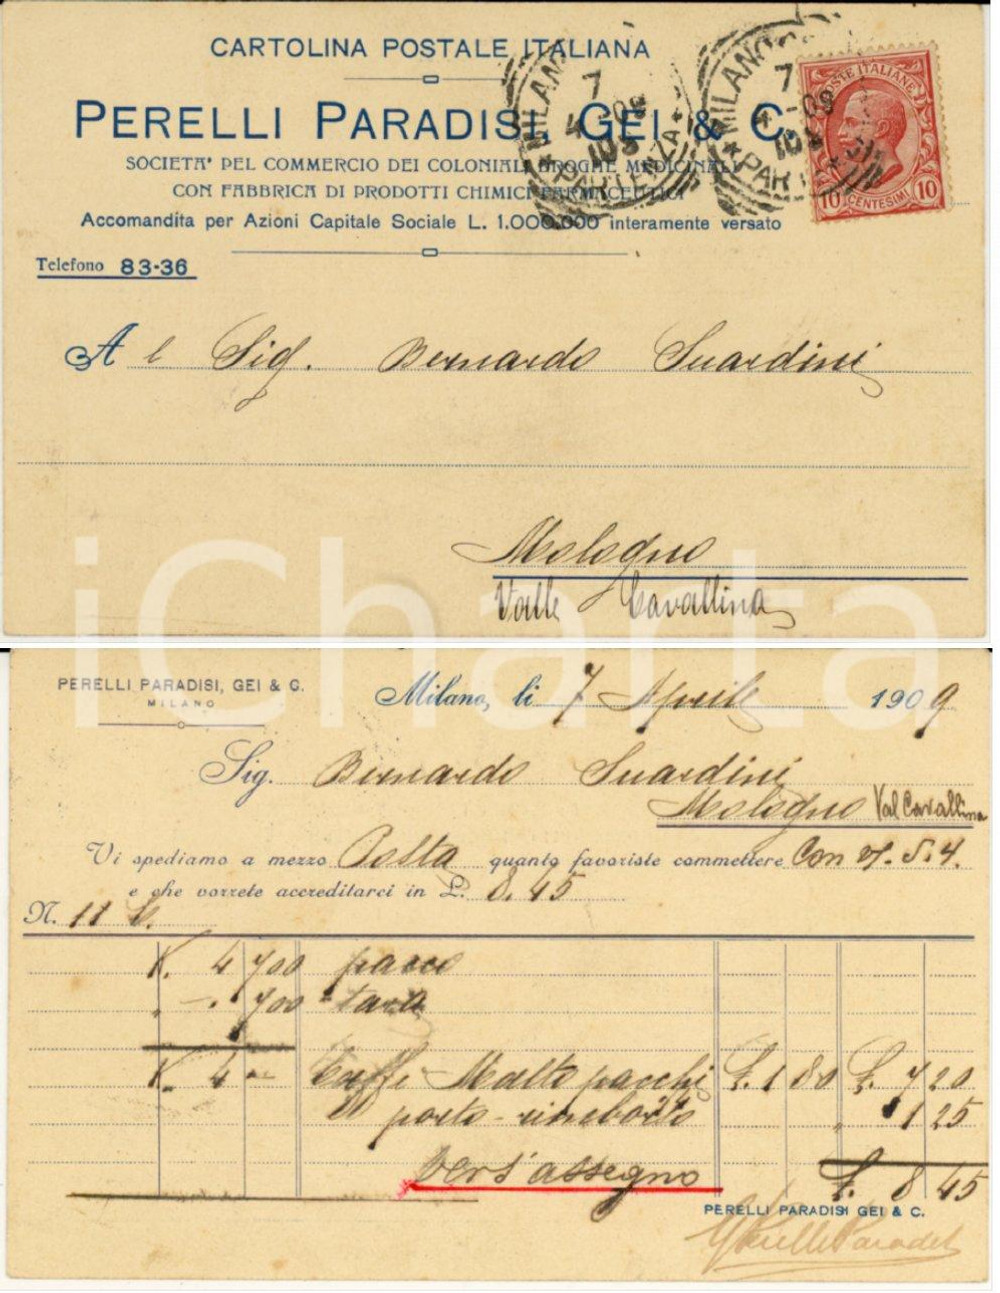 CARTOLINA POSTALE ITALIANA
PERELLI PARADISI, GEI & C.
SOCIETA' DEL COMMERCIO DEI COLONIALI DROGHE MEDICINALI
CON FABBRICA DI PRODOTTI CHIMICI FARMACEUTICI
Accomandita per Azioni Capitale Sociale L. 1.000.000 interamente versato
MILANO
7
4-09
PARTENZA
MILANO
7
4-09
POSTE ITALIANE
10 CENTESIMI 10
Telefono 83-36
Al Sig. Bernardo Suardini
Mologno
Valle Cavallina
iCharta
PERELLI PARADISI, GEI & C.
MILANO
Milano, li 7 Aprile 1909
Sig. Bernardo Suardini
Mologno Val Cavallina
Vi spediamo a mezzo Posta quanto favoriste commettere con
e che vorrete accreditarci in L. 8.45
N. 11
K. 4 700 pacco
" -. 700 tara
K. 4 - Caffè Malto pacchi £. 1 80 £. 7 20
porto-rimborso " 1 25
Vers' assegno £. 8 45
PERELLI PARADISI GEI & C.